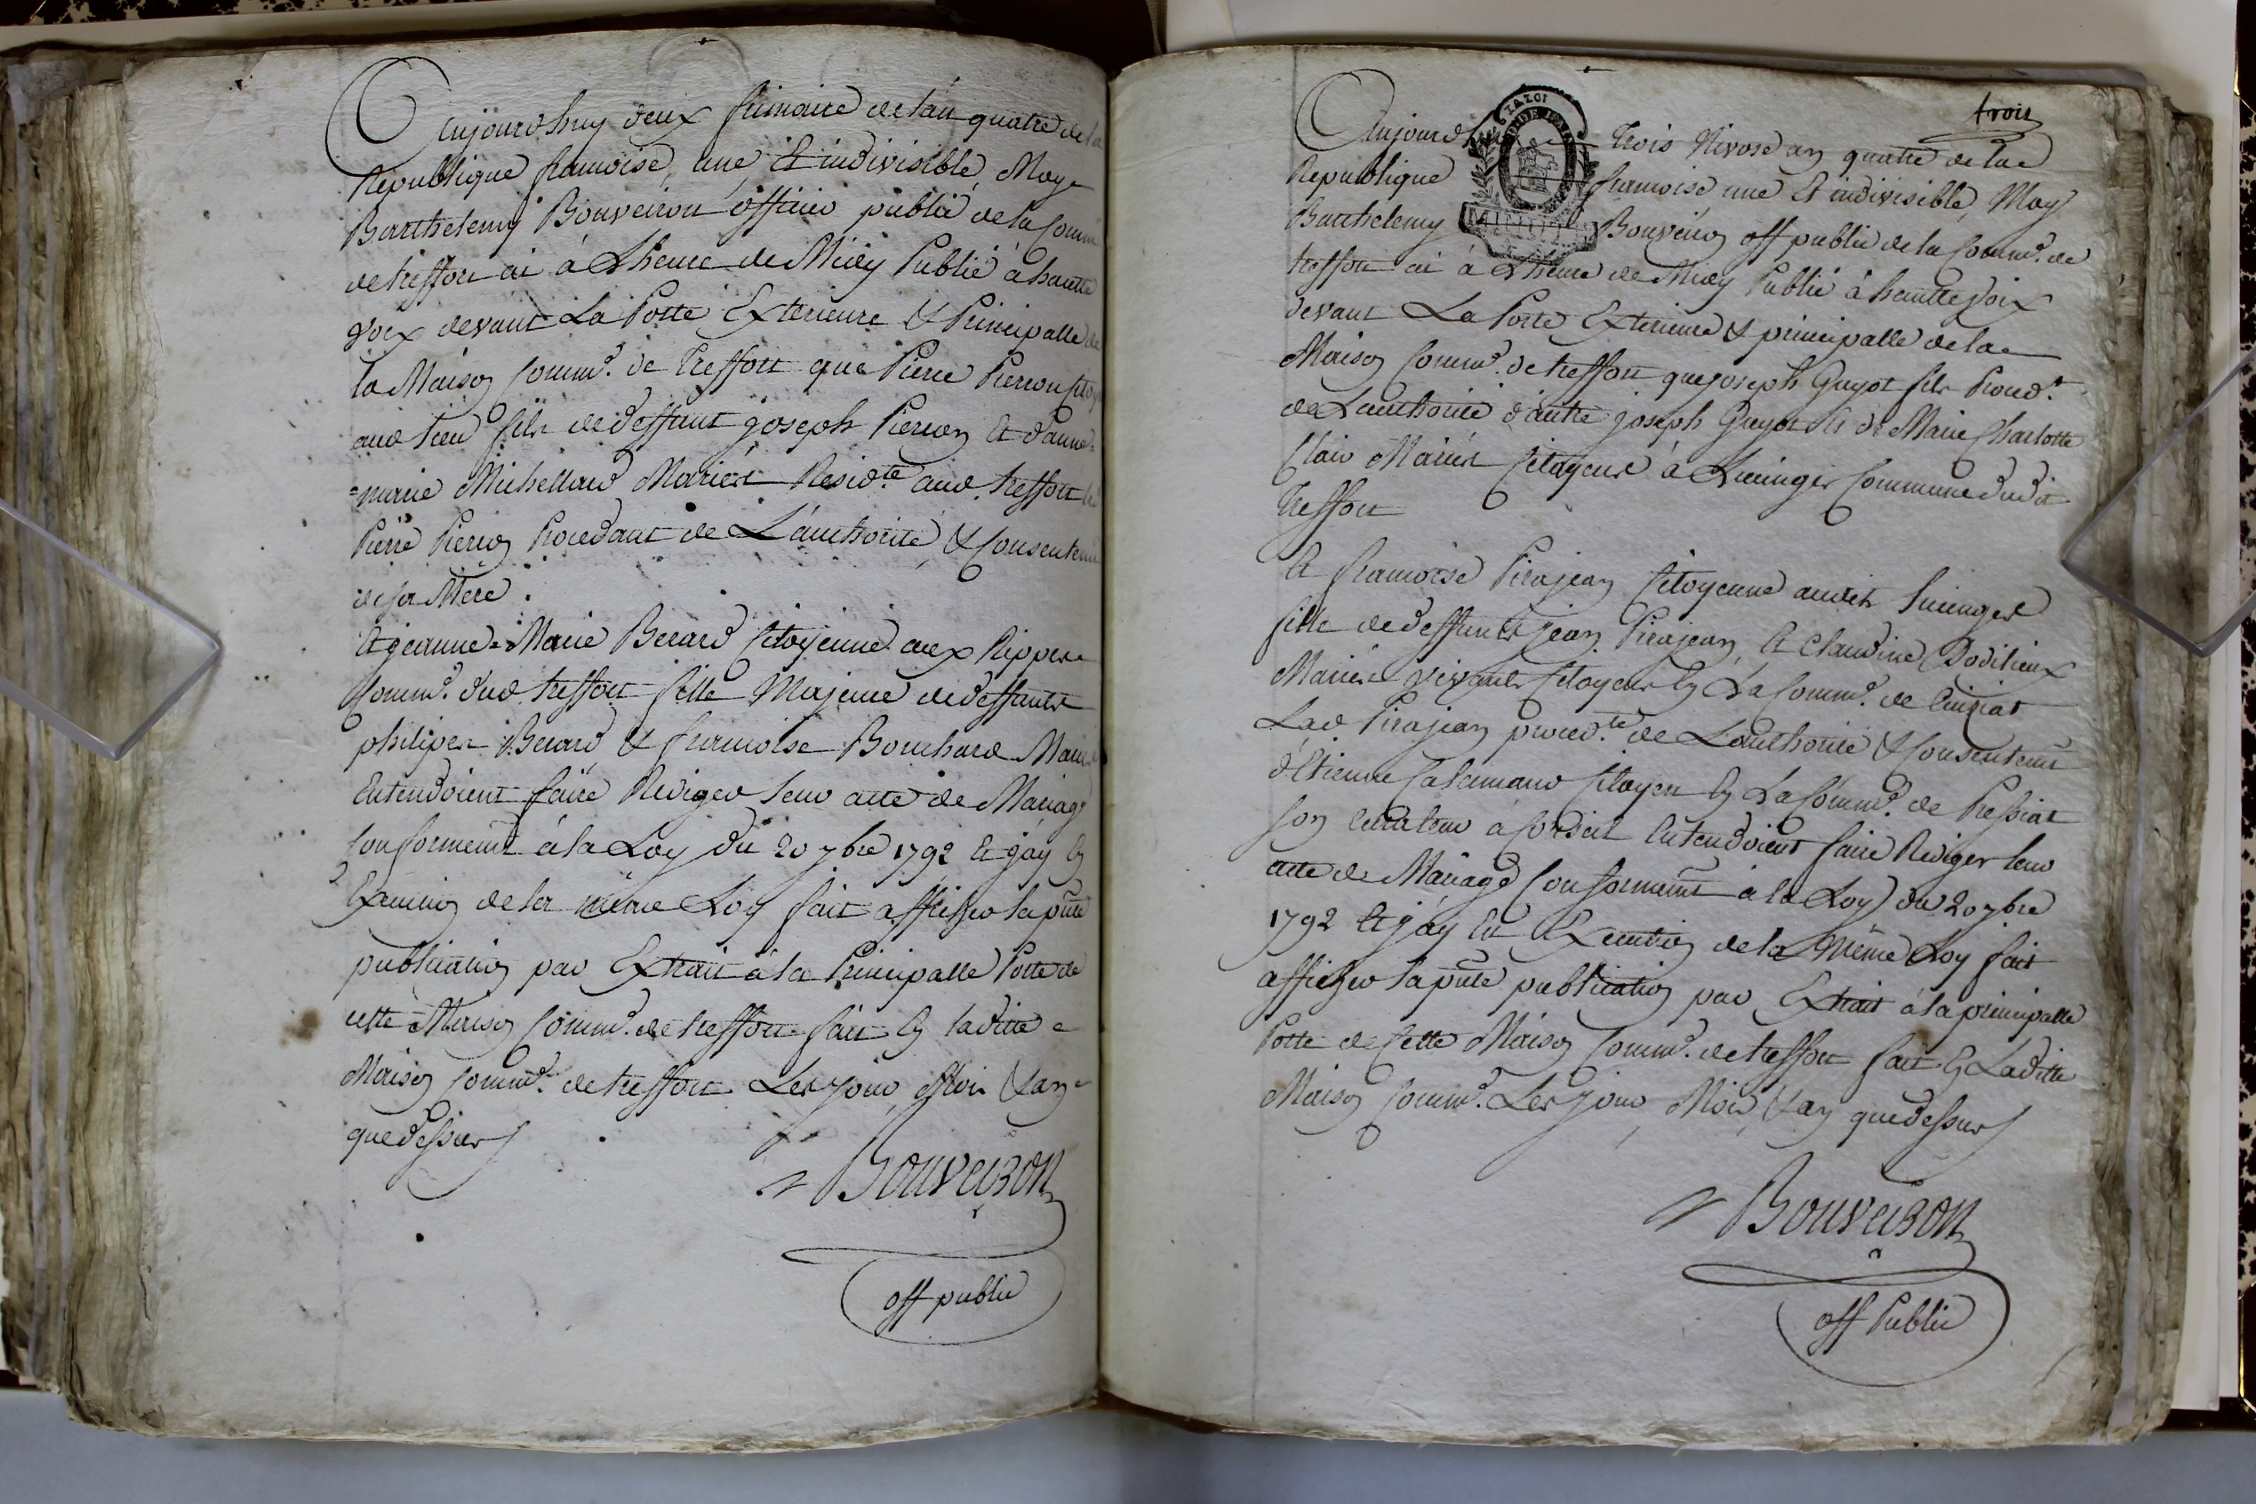 Aujourdhuy deux frimaire de lan quatre de la
Republique francoise, une Et indivisible, Moy
Barthelemy Bouveiron officier public de la Comm
de treffort ai à Lheure de Midy Publié à hautte
Voix devant La Porte Exterieure & Principalle de
la Maison Comm.e de Treffort que Pierre Pierron Citoy
aud lieu fils de deffunt joseph Pierron Et d'anne
=marie Michellard Mariés Resid.te aud. treffort led
Pierre Pierron Procedant de L'authorité & Consenteme
de sa Mere.
Et jeanne-Marie Berard Citoyenne aux Rippes
Comm.e dud treffort fille Majeure de deffunts
philiper Berard & francoise Bouchard Mariés
Entendoient faire Rediger leur acte de Mariage
Conformemt à la Loy du 20 7bre 1792 Et jay En
Execution de la même Loy fait afficher la pnte
publication par Extrait à la Principalle Porte de
cette Maison Comm.e de treffort fait En laditte
Maison Comm.e de treffort Les jour Mois & an
que dessus
Bouveiron
off public
trois
Aujourdhuy Trois Nivose an quatre de la
Republique francoise une Et indivisible, Moy
Barthelemy Bouveiron off public de la Comm.e de
treffort ai à Lheure de Midy Publié à hautte Voix
devant La Porte Exterieure & principalle de la
Maison Comm.e de treffort que joseph Guyot fils Proced.t
de Lauthorité d'autre joseph Guyot Et de Marie Charlotte
Clair Mariés Citoyens à Lucinges Commune dudit
Treffort
Et francoise Pirajean Citoyenne audit Lucinges
fille de deffunts Jean Pirajean, Et Claudine Dodilieux
Mariés vivants Citoyens En La Comm.e de Cuiziat
Lad. Pirajean proced.te de Lauthorité & Consentemt
d'Etienne Calamard Citoyen En La Comm.e de Pressiat
son Curateur à Conseil Entendoient faire Rediger leur
acte de Mariage Conformemt à la Loy du 20 7bre
1792 Et jay En Execution de la Même Loy fait
afficher la pnte publication par Extrait à la principalle
Porte de Cette Maison Comm.e de treffort fait En Laditte
Maison Comm.e Les jour, Mois, & an que dessus
Bouveiron
off Public